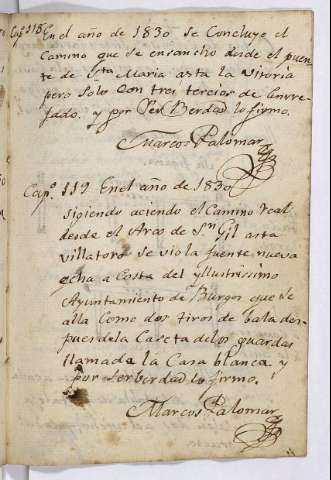 Capº. 118 En el año de 1830 se Concluye el
Camino que se ensancho desde el puen
te de Sta Maria asta la Vitoria
pero solo con tres tercios de
fado. y por ser Berdad lo firmo.
Marcos Palomar
Capº. 119 En el año de 1830
sigiendo aciendo el Camino real
desde el Arco de Sn Gil asta
villatoro se viola fuente nueva
echa a Costa del yllustrissimo
Ayuntamiento de Burgos que se
alla Como dos tiros de bala des-
pues dela Caseta delos guardas
llamada la Casa blanca y
por ser berdad lo firmo.
Marcos Palomar